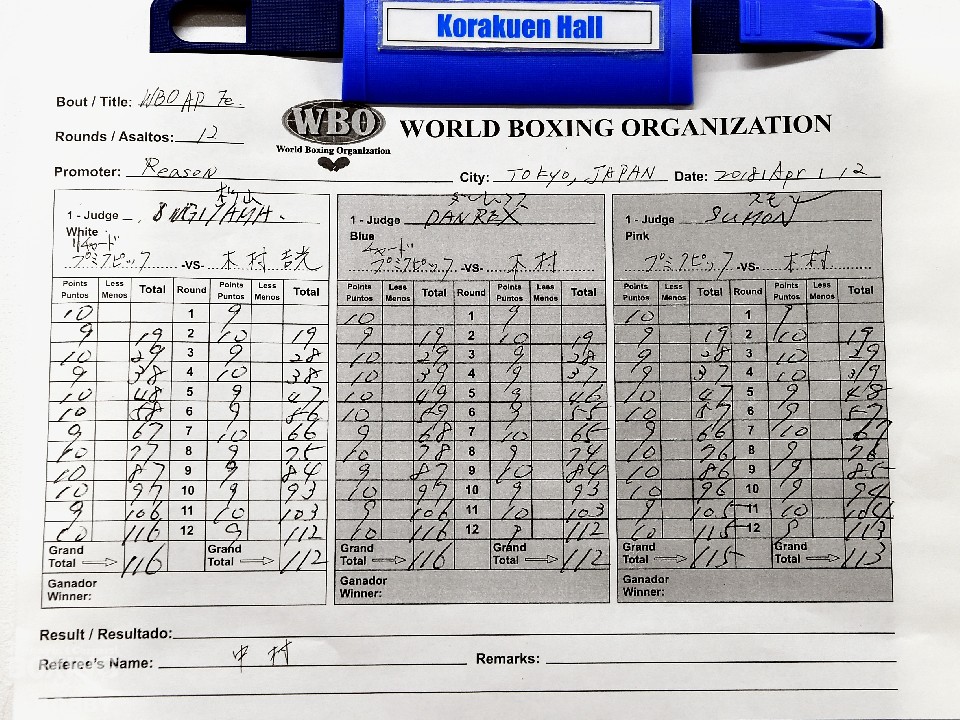 Korakuen Hall
Bout / Title: WBO AP Fe.
Rounds / Asaltos: 12
WBO
World Boxing Organization
WORLD BOXING ORGANIZATION
Promoter: Reason City: TOKYO, JAPAN Date: 2018 Apr 12
1 - Judge
White
リチャード
プミクピック -VS- 木村 吉光
Points Puntos Less Menos Total Round Points Puntos Less Menos Total
10 1 9
9 19 2 10 19
10 29 3 9 28
9 38 4 10 38
10 48 5 9 47
10 58 6 9 56
9 67 7 10 66
10 77 8 9 75
10 87 9 9 84
10 97 10 9 93
9 106 11 10 103
10 116 12 9 112
Grand Total 116 Grand Total 112
Ganador
Winner:
1 - Judge DANREX
Blue
リチャード
プミクピック -VS- 木村
Points Puntos Less Menos Total Round Points Puntos Less Menos Total
10 1 9
9 19 2 10 19
10 29 3 9 28
10 39 4 9 37
10 49 5 9 46
10 59 6 9 55
9 68 7 10 65
10 78 8 9 74
9 87 9 10 84
10 97 10 9 93
9 106 11 10 103
10 116 12 9 112
Grand Total 116 Grand Total 112
Ganador
Winner:
1 - Judge SUMON
Pink
プミクピック -VS- 木村
Points Puntos Less Menos Total Round Points Puntos Less Menos Total
10 1 9
9 19 2 10 19
9 28 3 10 29
9 37 4 10 39
10 47 5 9 48
10 57 6 9 57
9 66 7 10 67
10 76 8 9 76
10 86 9 9 85
10 96 10 9 94
9 105 11 10 104
10 115 12 9 113
Grand Total 115 Grand Total 113
Ganador
Winner:
Result / Resultado:
Referee's Name: 中村 Remarks: